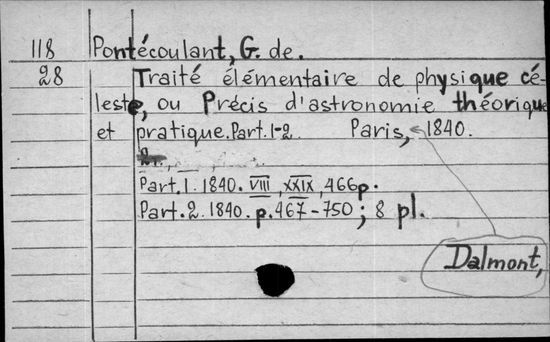 118 Pontécoulant, G. de.
28 Traité élémentaire de physique cé-
leste, ou Précis d'astronomie théorique
et pratique. Part. 1-2 Paris, 1840.
Part. 1. 1840. VIII, XXIX, 466 p.
Part. 2. 1840. p. 467-750; 8 pl.
Dalmont,